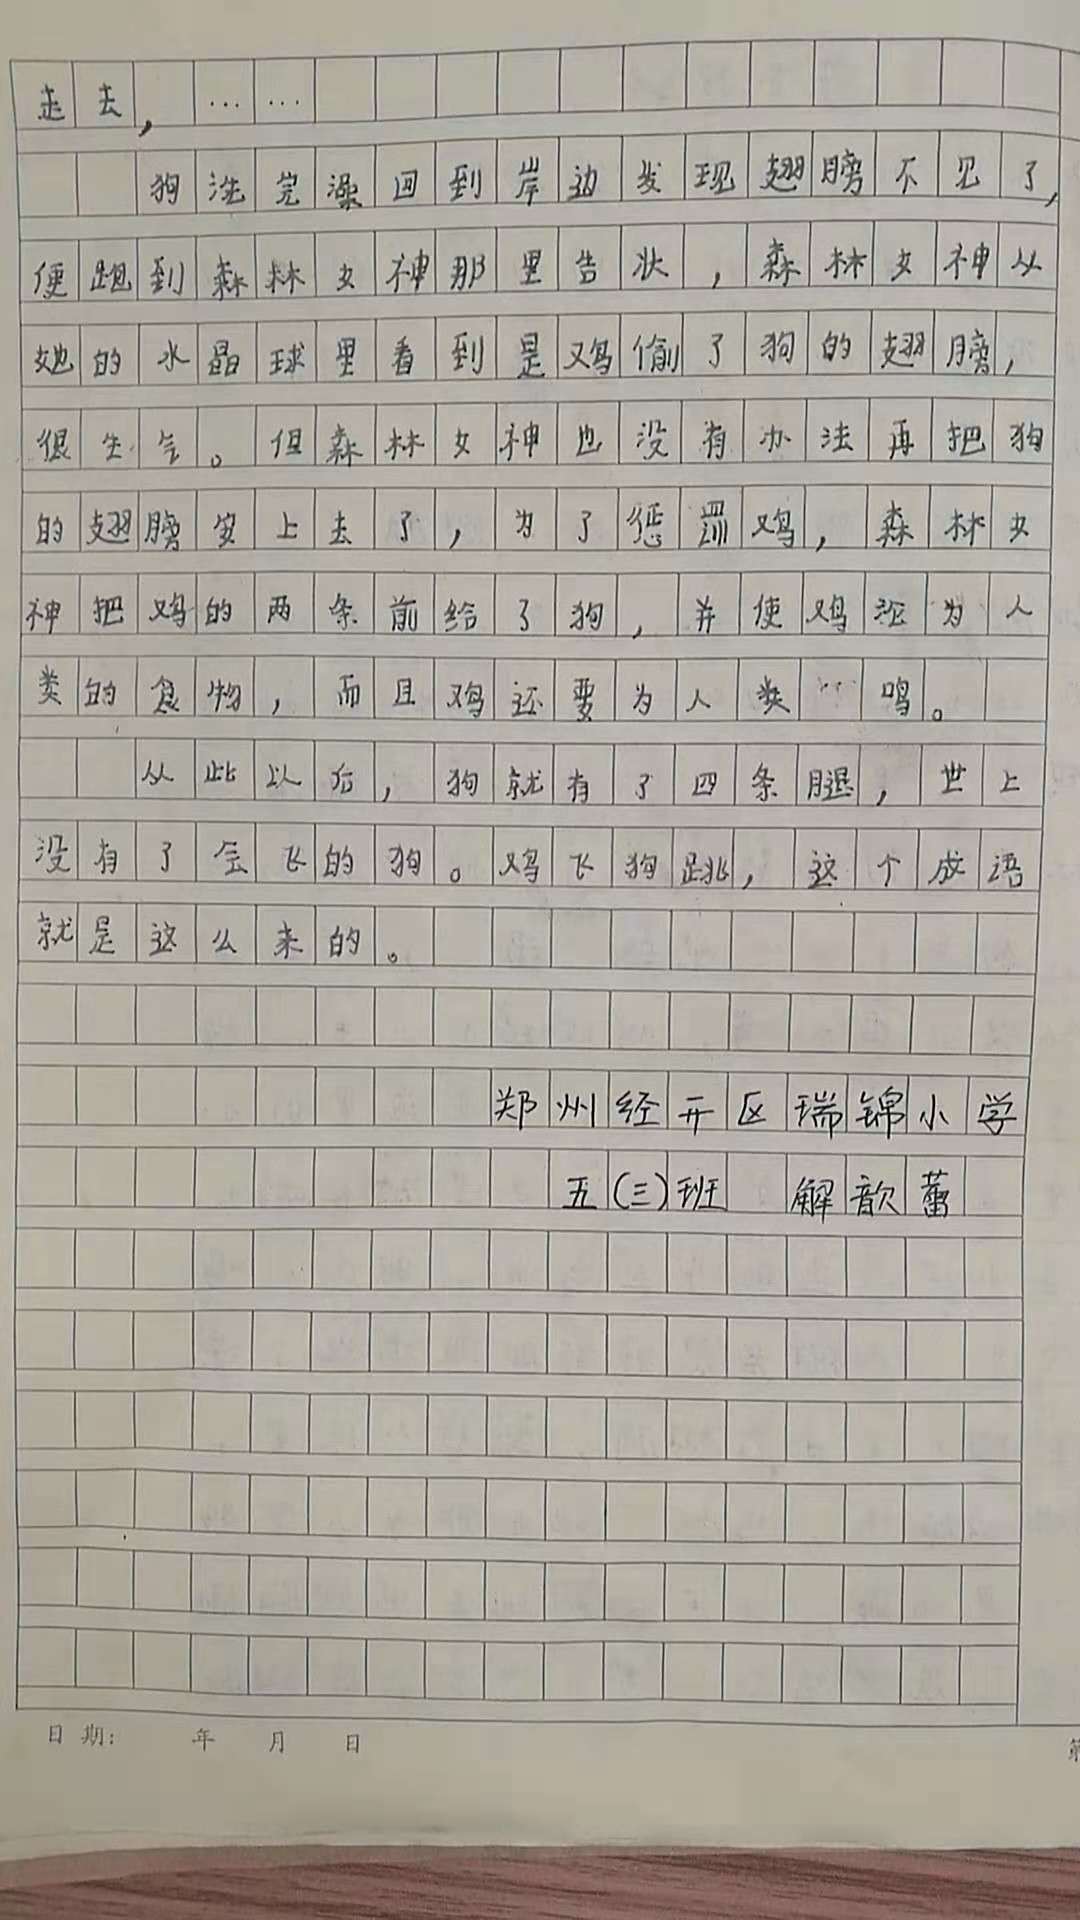 走去，……
狗洗完澡回到岸边发现翅膀不见了，
便跑到森林女神那里告状，森林女神从
她的水晶球里看到是鸡偷了狗的翅膀，
很生气。但森林女神也没有办法再把狗
的翅膀安上去了，为了惩罚鸡，森林女
神把鸡的两条前给了狗，并使鸡沦为人
类的食物，而且鸡还要为人类 鸣。
从此以后，狗就有了四条腿，世上
没有了会飞的狗。鸡飞狗跳，这个成语
就是这么来的。
郑州经开区瑞锦小学
五(三)班 解歆蕾
日期: 年 月 日